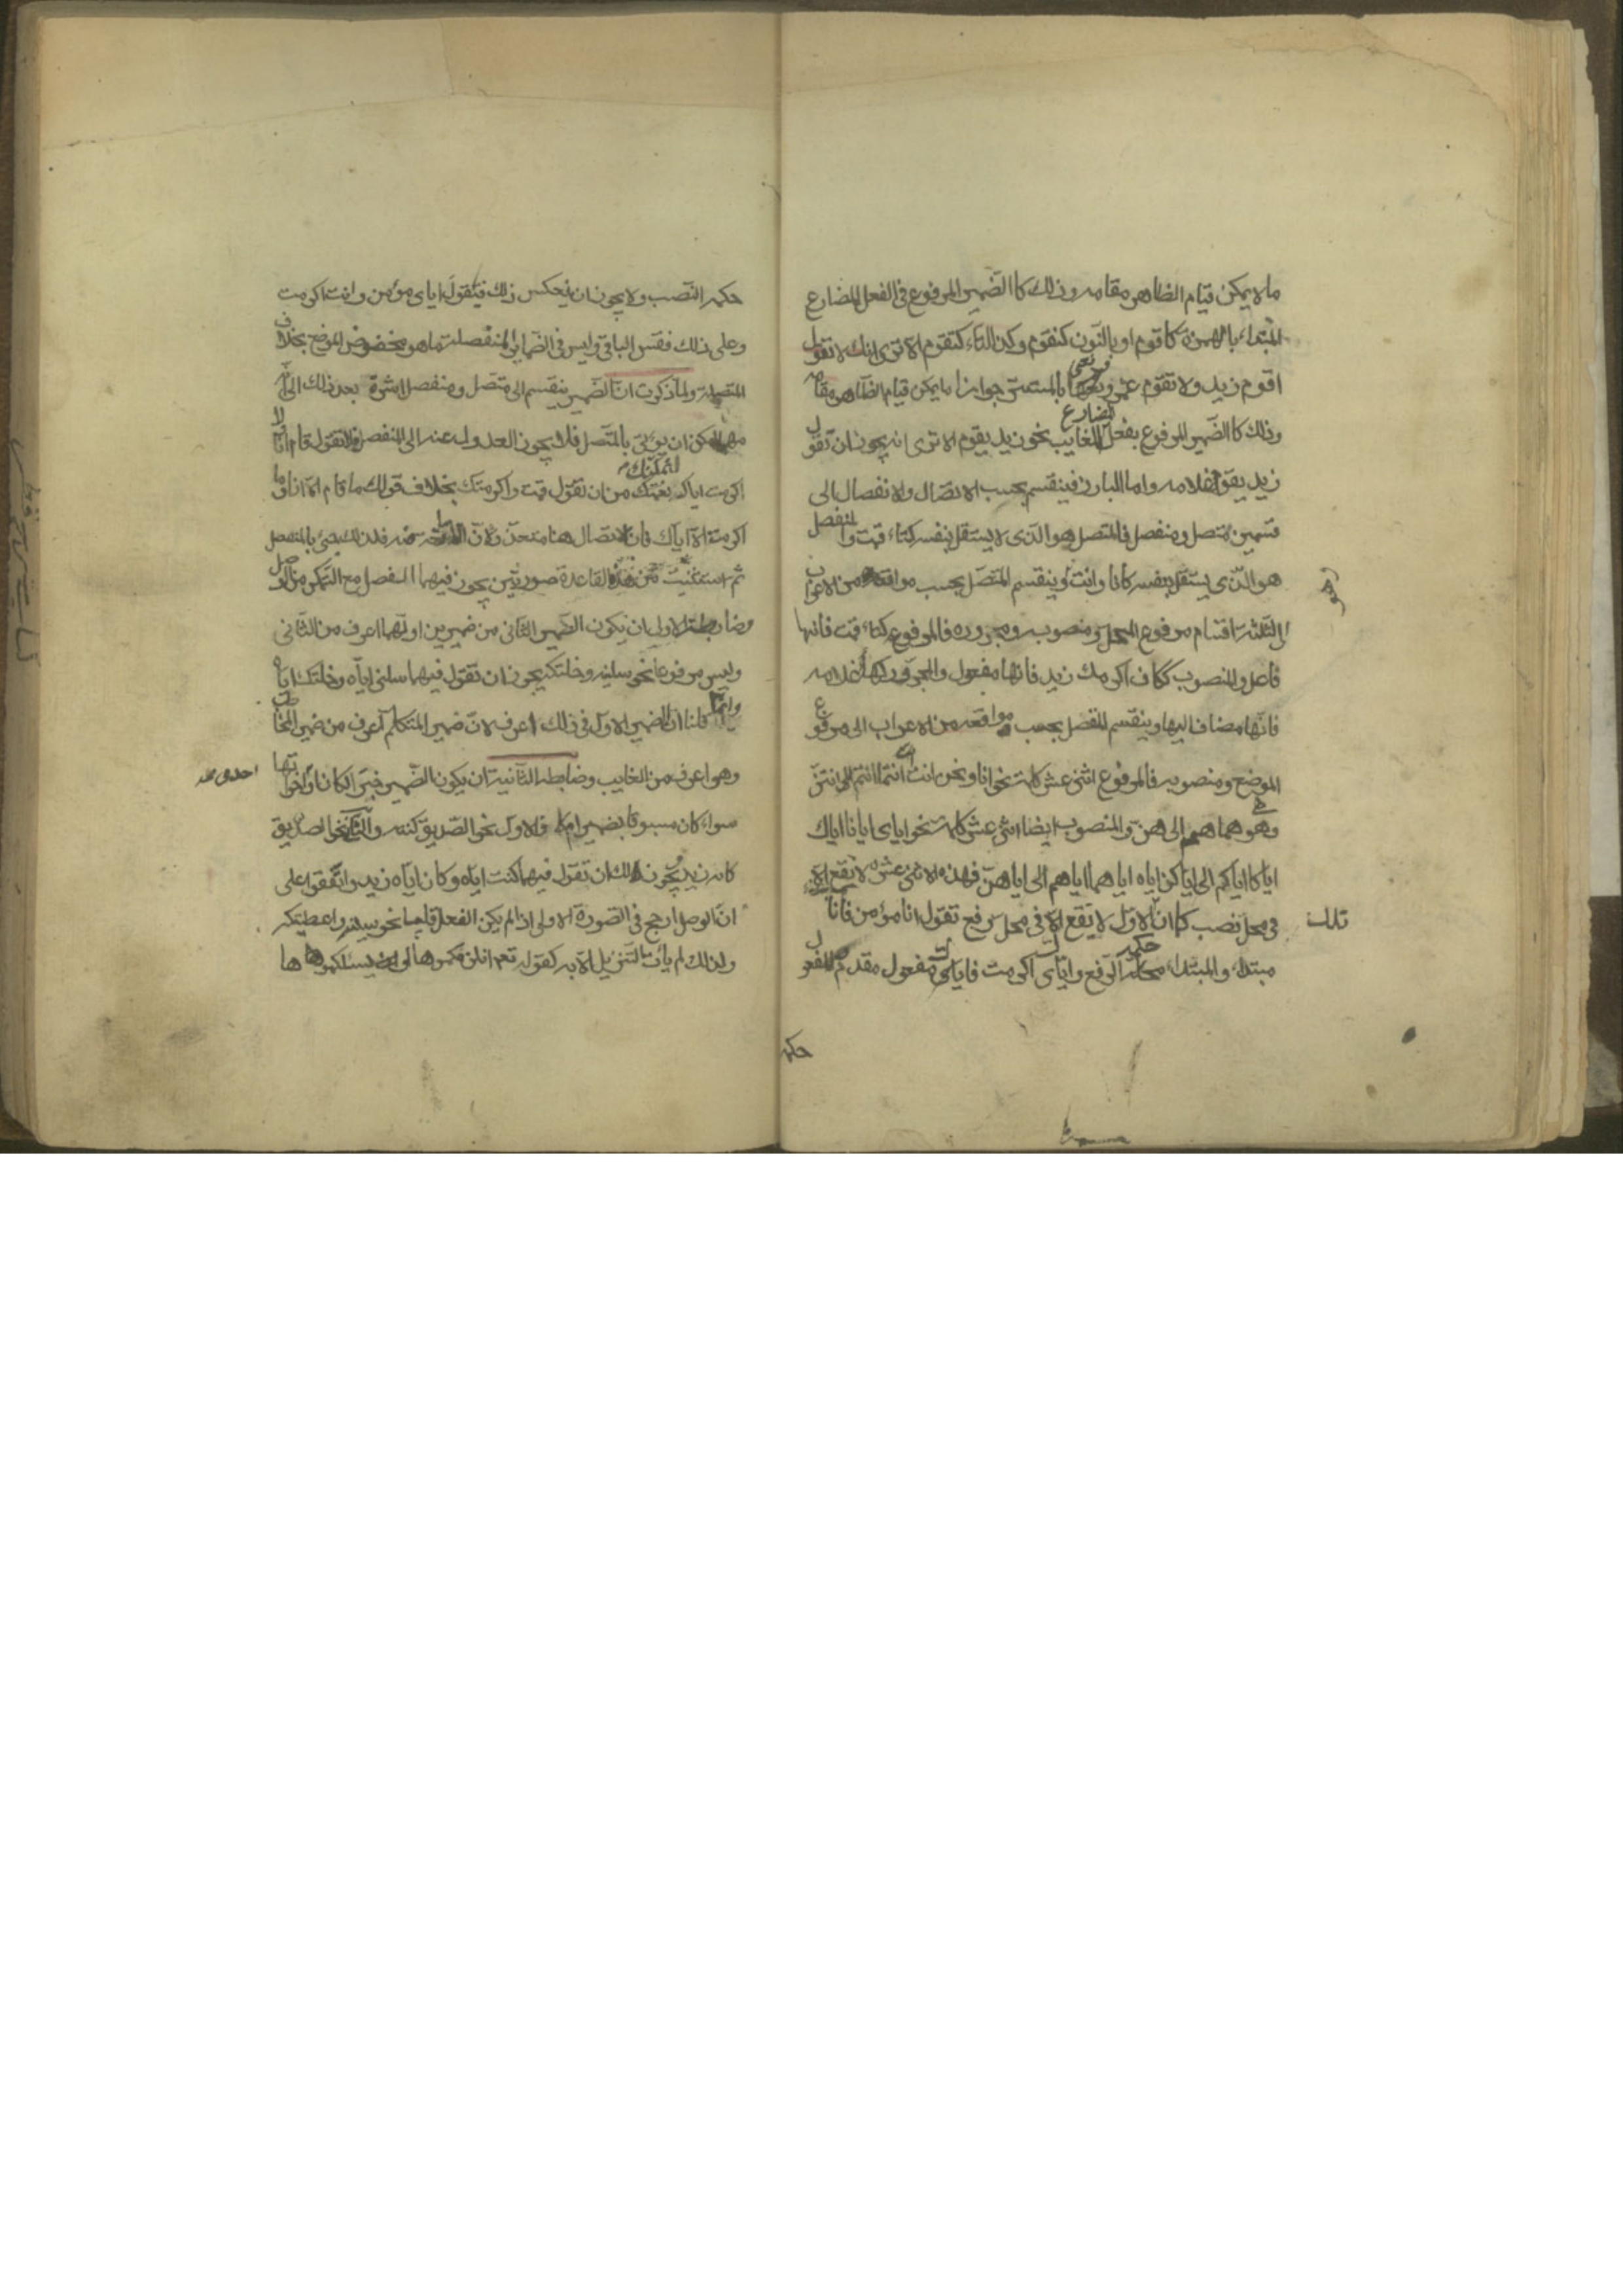 ما لا يمكن قيام الظاهر مقامه وذلك كالضمير المرفوع في الفعل المضارع
المبتداء بالهمزة كاقوم او بالنون كنقوم وكذا التاء كتقوم الا ترى انك لا تقول
اقوم زيد ولا تقوم عمرو ونعنى بالمستتر جوازا ما يمكن قيام الظاهر مقامه
وذلك كالضمير المرفوع بفعل المضارع الغايب نحو زيد يقوم الا ترى انه يجوز ان تقول
زيد يقوم غلامه واما البارز فينقسم بحسب الاتصال والانفصال الى
قسمين متصل ومنفصل فالمتصل هو الذى لا يستقل بنفسه كتاء قمت والمنفصل
هو الذى يستقل بنفسه كانا وانت وينقسم المتصل بحسب مواقعه من الاعراب
الى ثلثة اقسام مرفوع المحل ومنصوبه ومجروره فالمرفوع كتاء قمت فانها
فاعل والمنصوب ككاف اكرمك زيد فانها مفعول والمجرور كهاء غلامه
فانها مضاف اليها وينقسم المنفصل بحسب مواقعه من الاعراب الى مرفوع
الموضع ومنصوبه فالمرفوع اثنى عشر كلمة نحو انا ونحن انت انت انتما انتم انتن
وهو هى هما هم الى هن والمنصوب ايضا اثنى عشر كلمة نحو اياى ايانا اياك
اياكما اياكم الى اياكن اياه اياهما اياهم الى اياهن فهذه الاثنى عشر لا تقع الا
فى محل نصب كما ان تلك الاول لا يقع الا فى محل رفع تقول انا مؤمن فانا
مبتداء والمبتداء حكمه الرفع واياك اكرمت فاياك مفعول مقدم والمفعول
حكمه
حكمه النصب ولا يجوز ان يعكس ذلك فتقول اياى مؤمن وانت اكرمت
وعلى ذلك فقس الباقي وليس في الضماير المنفصلة ما هو مخفوض الموضع بخلاف
المتصلة ولما ذكرت ان الضمير ينقسم الى متصل ومنفصل اشرت بعد ذلك الى انه
مهما امكن ان يؤتى بالمتصل فلا يجوز العدول عنه الى المنفصل فلا تقول قام انا ولا
اكرمت اياك لتمكنك من ان تقول قمت واكرمتك بخلاف قولك ما قام الا انا وما
اكرمت الا اياك فان الاتصال هنا متعذر لان الا مانعة منه فلذلك جئ بالمنفصل
ثم استثنيت من هذه القاعدة صورتين يجوز فيهما الفصل مع التمكن من الوصل
وضابطة الاولى ان يكون الضمير الثانى من ضميرين اولهما اعرف من الثانى
وليس مرفوعا نحو سلنيه وخلتكه يجوز ان تقول فيهما سلنى اياه وخلتك اياه
وانما قلنا ان الضمير الاول في ذلك اعرف لان ضمير المتكلم اعرف من ضمير المخاطب
وهو اعرف من الغايب وضابطة الثانية ان يكون الضمير خبر الكان او احدى اخواتها
سواء كان مسبوقا بضمير ام لا فالاول نحو الصديق كنته والثانى نحو الصديق
كانه زيد يجوز لك ان تقول فيهما كنت اياه وكان اياه زيد واتفقوا على
ان الوصل ارجح في الصورة الاولى اذا لم يكن الفعل قلبيا نحو سلنيه واعطيتكه
ولذلك لم يأت التنزيل الا به كقوله تعم انلزمكموها ان يسئلكموها